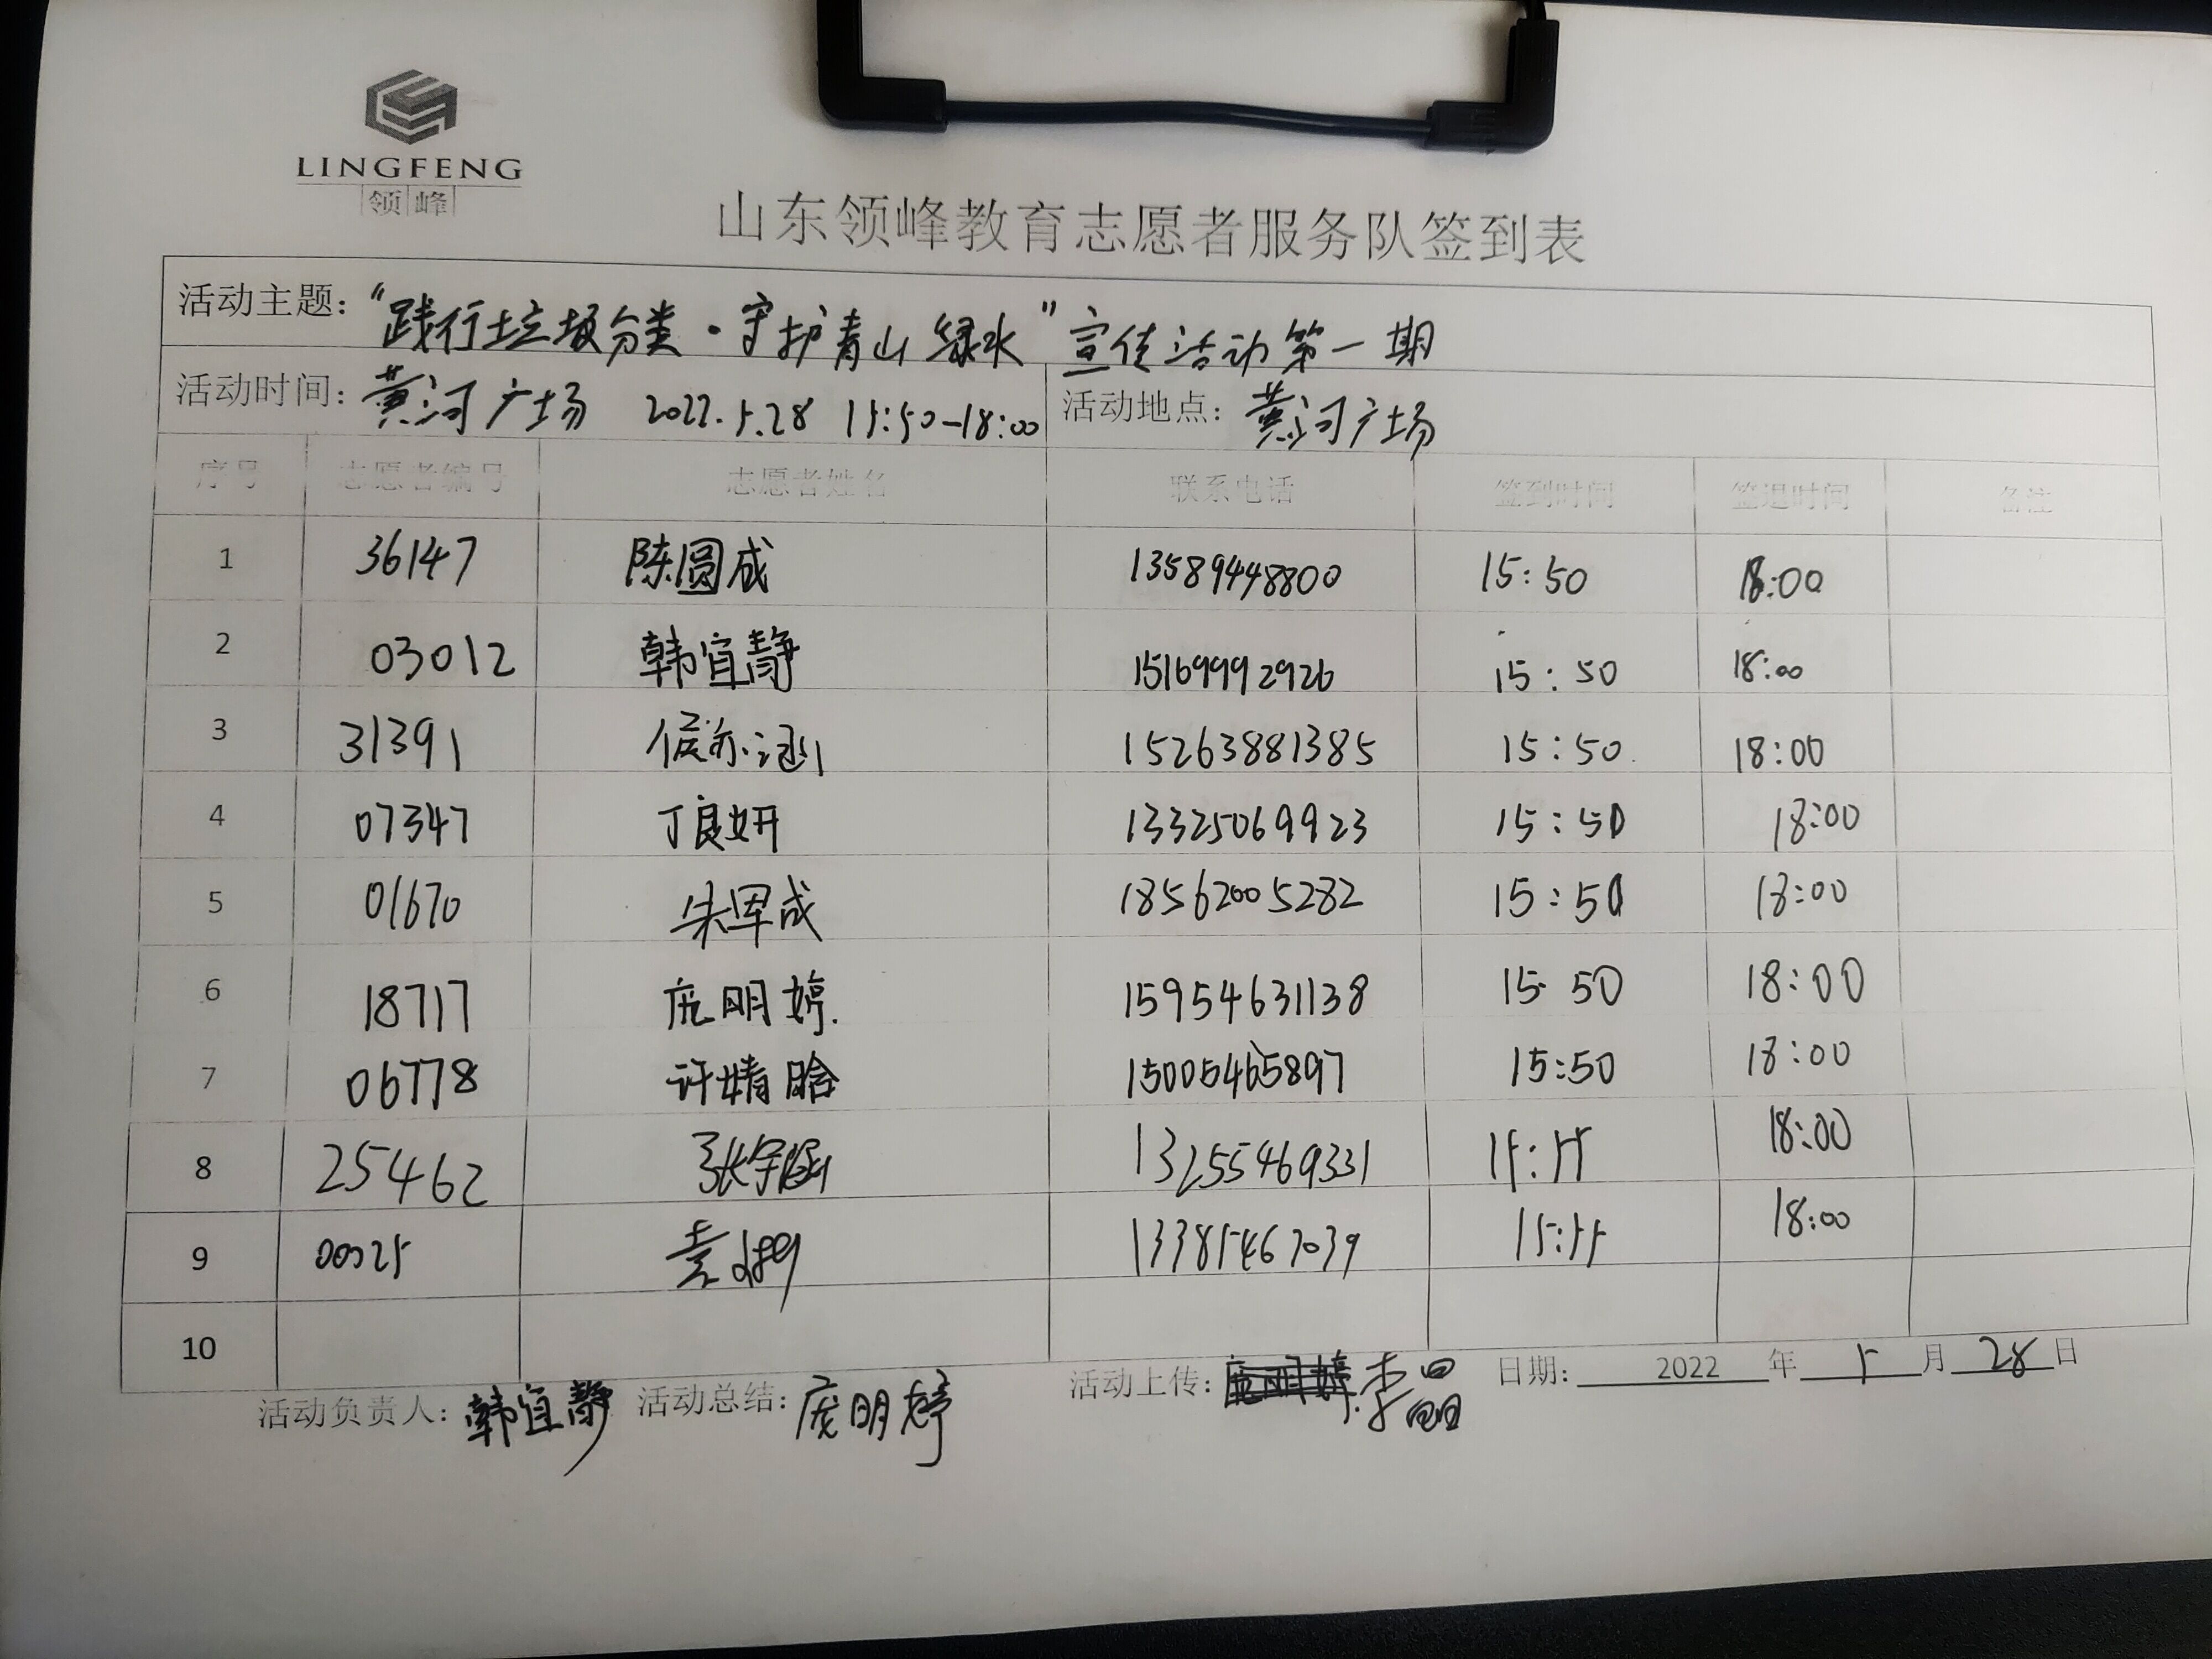 LINGFENG
领峰
山东领峰教育志愿者服务队签到表
活动主题：“践行垃圾分类·守护青山绿水”宣传活动第一期
活动时间：黄河广场 2022.5.28 15:50-18:00 活动地点：黄河广场
序号 志愿者编号 志愿者姓名 联系电话 签到时间 签退时间 备注
1 36147 陈圆成 13589448800 15:50 18:00
2 03012 韩宜静 15169992926 15:50 18:00
3 31391 侯亦涵 15263881385 15:50 18:00
4 07347 丁良妍 13325069923 15:50 18:00
5 01670 朱军成 18562005282 15:50 18:00
6 18717 庞明婷 15954631138 15 50 18:00
7 06778 许婧晗 15005465897 15:50 18:00
8 25462 张宇涵 13255469331 15:55 18:00
9 00025 袁 13385467039 15:55 18:00
10
活动负责人：韩宜静 活动总结：庞明婷 活动上传：李晶 日期：2022年5月28日